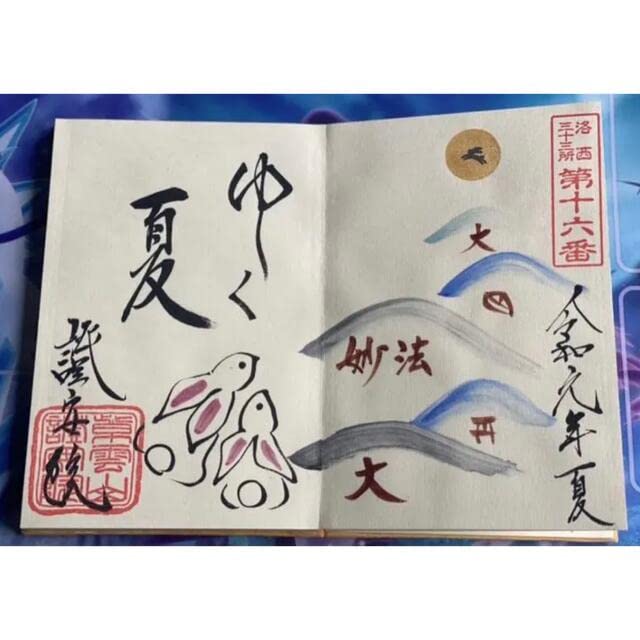 洛西
三十三所
第十六番
令和元年夏
大
妙法
大
ゆく
夏